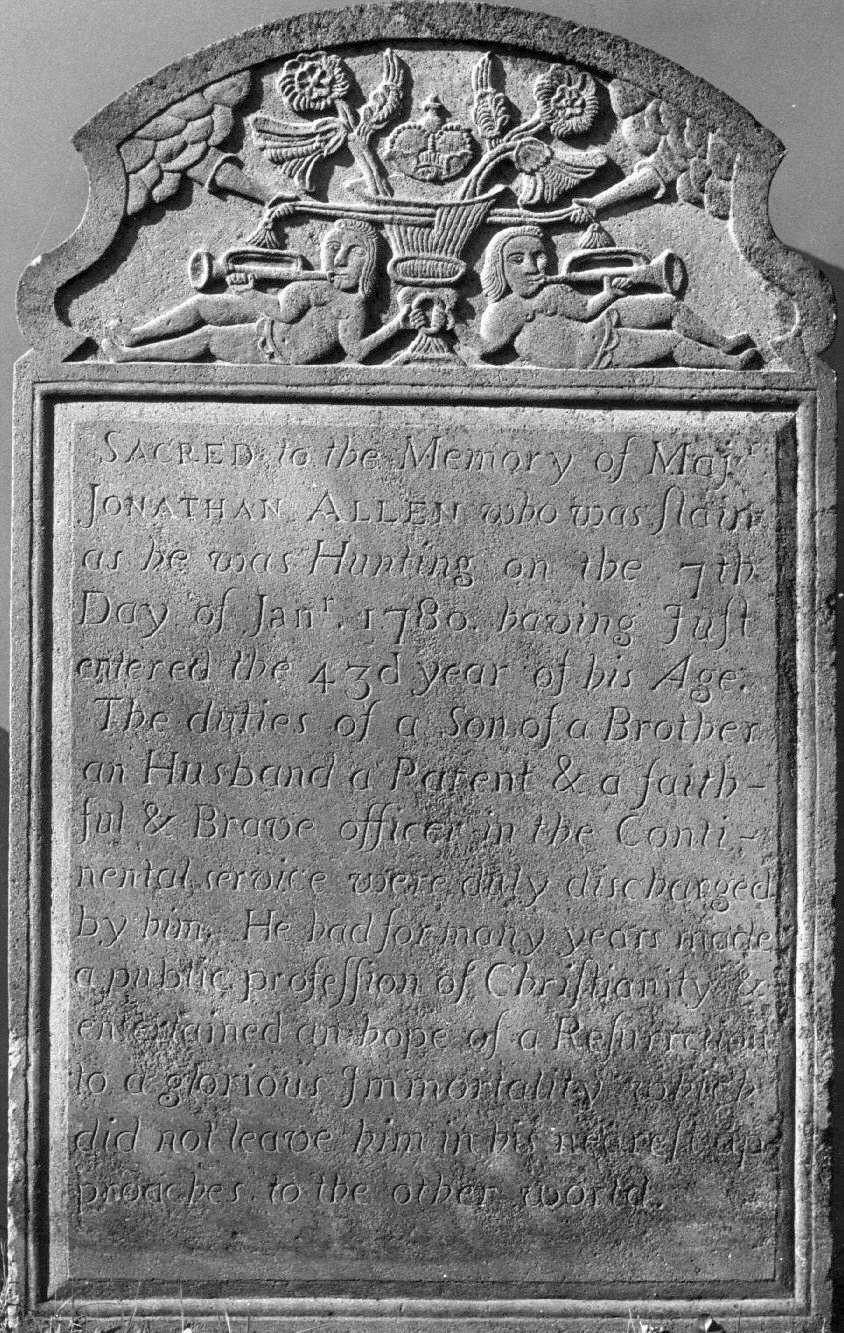 SACRED to the Memory of Majr
JONATHAN ALLEN who was ſlain
as he was Hunting on the 7th
Day of Janr. 1780. having Juſt
entered the 43d year of his Age.
The duties of a Son of a Brother
an Husband a Parent & a faith-
ful & Brave officer in the Conti-
nental service were duly discharged
by him. He had for many years made
a public profeſſion of Chriſtianity &
entertained an hope of a Reſurrection
to a glorious Immortality which
did not leave him in his neareſt ap
proaches to the other world.